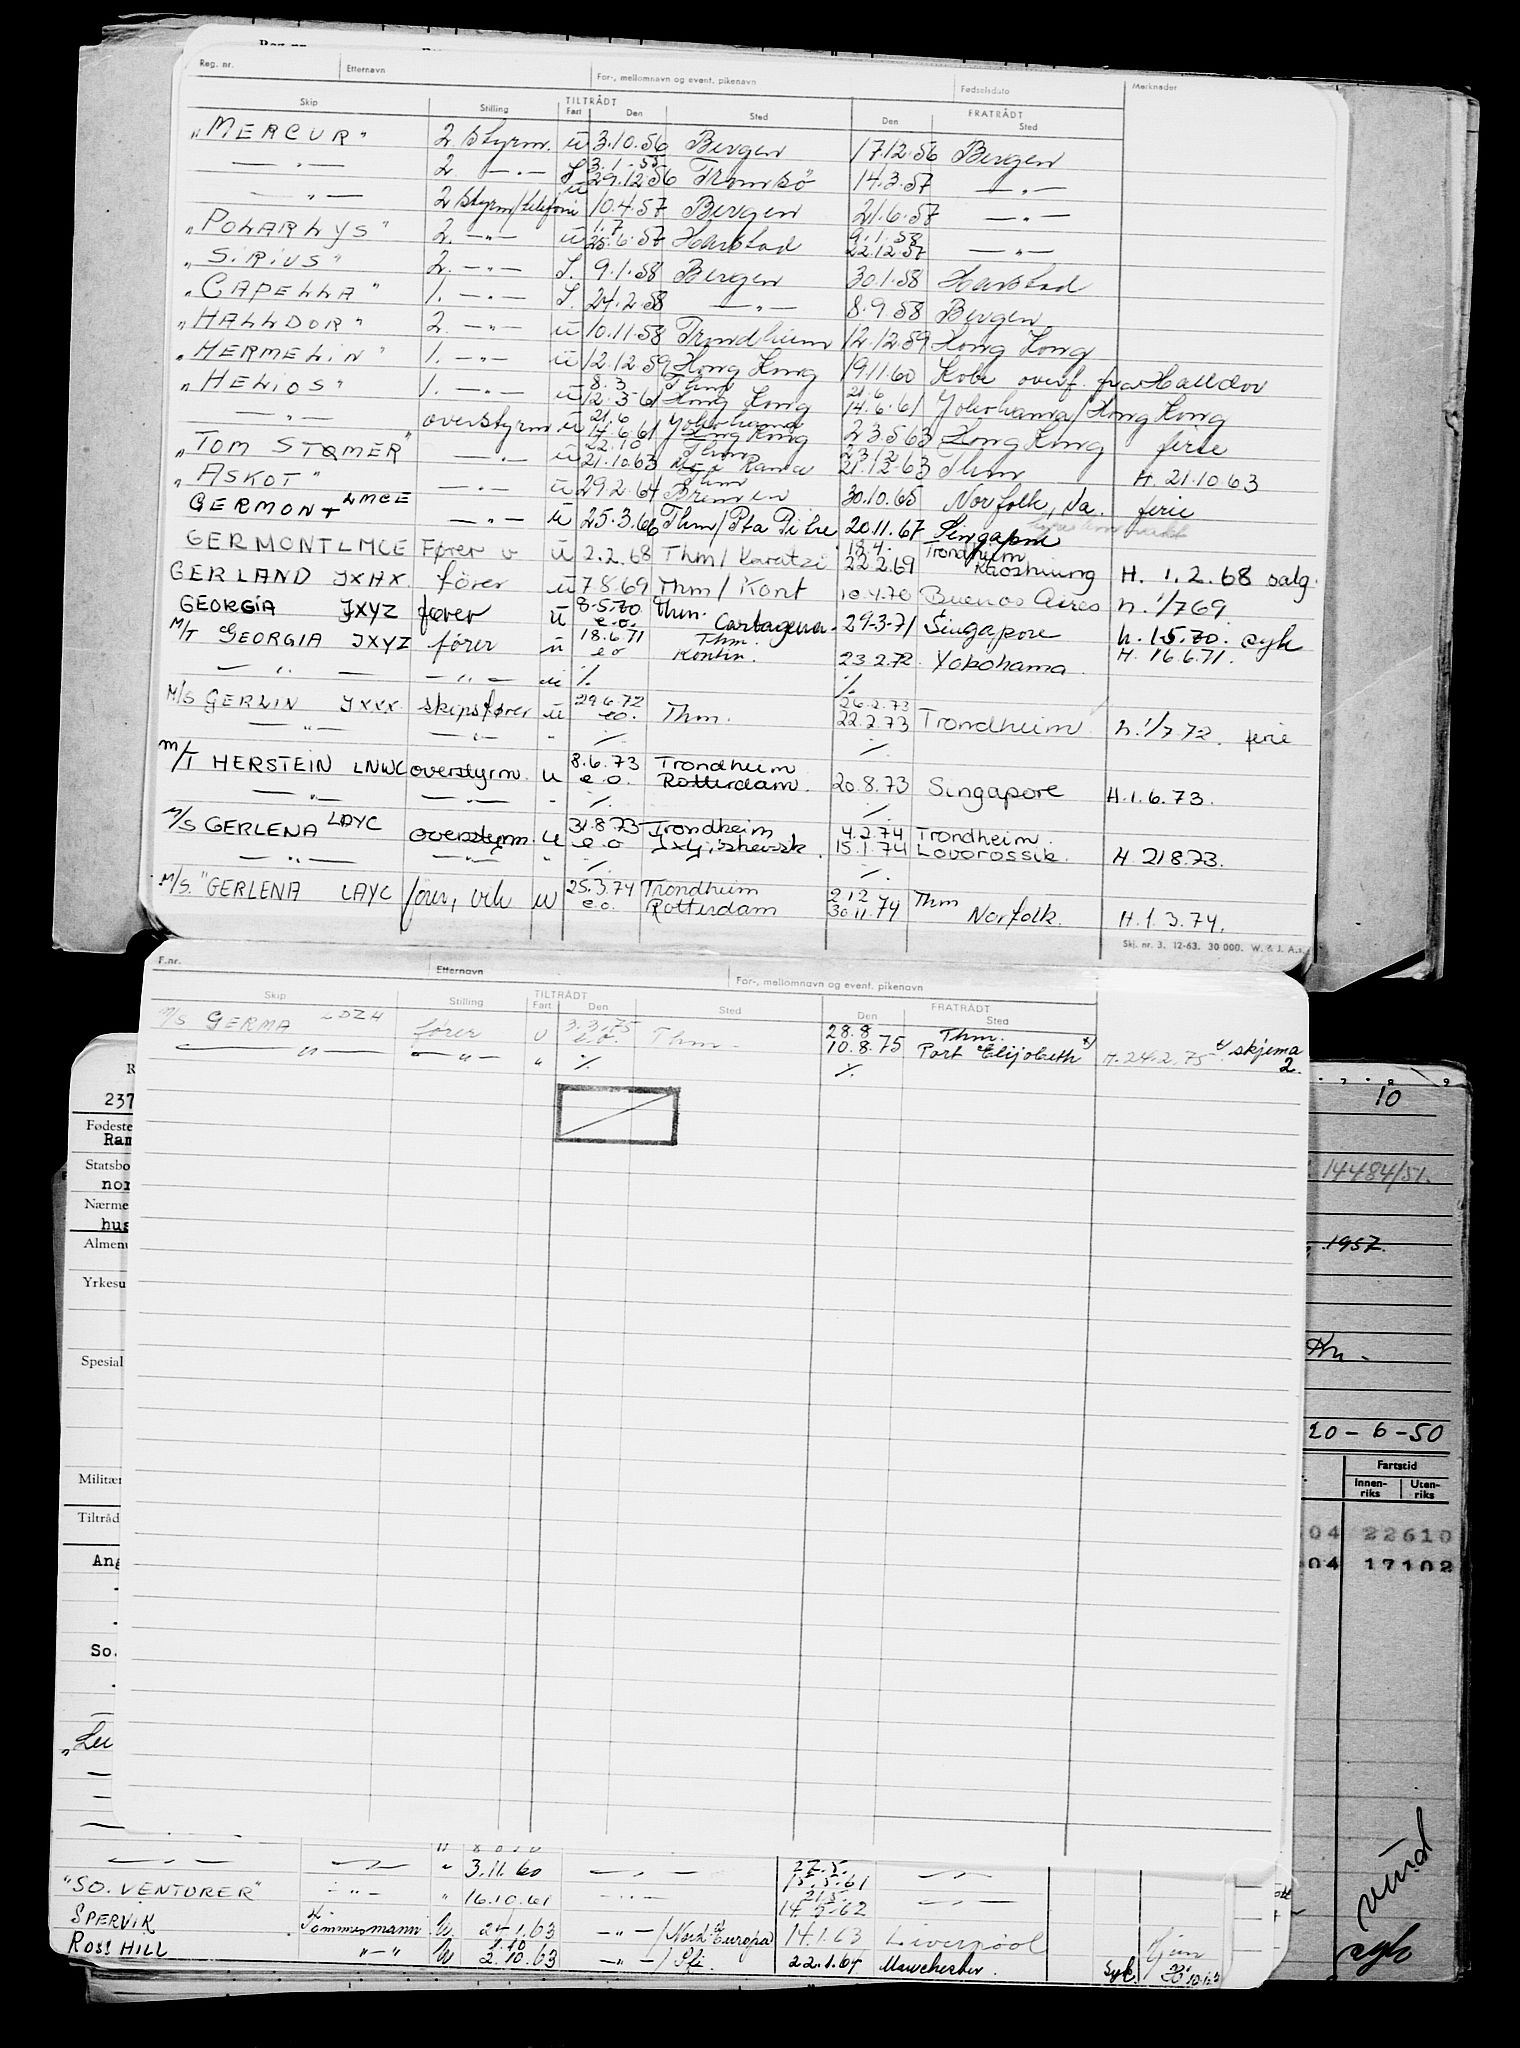 Reg. nr. Etternavn For-, mellomnavn og event. pikenavn Fødselsdato Merknader
Skip Stilling TILTRÅDT Fart Den Sted FRATRÅDT Den Sted
"MERCUR" 2 styrm. u 3.10.56 Bergen 17.12.56 Bergen
— " — 2 — " — 3.1.55 29.12.56 Tromsø 14.3.57 — " —
— " — 2 styrm/telefoni u 10.4.57 Bergen 21.6.57 — " —
"POLARLYS" 2. — " — u 1.7 25.6.57 Harstad 9.1.58 22.12.57 — " —
"SIRIUS" 2. — " — I. 9.1.58 Bergen 30.1.58 Harstad
"CAPELLA" 1. — " — I. 24.2.58 — " — 8.9.58 Bergen
"HALLDOR" 2. — " — u 10.11.58 Trondheim 12.12.59 Hong Kong
"HERMELIN" 1. — " — u 12.12.59 Hong Kong 19.11.60 Kobe overf. fra Halldor
"HELIOS" 1. — " — u 8.3 12.3.61 Thm Hong Kong 21.6 14.6.61 Yokohama/Hong Kong
— " — overstyrm u 21.6 14.6.61 Yokohama Hong Kong 23.5.63 Hong Kong ferie
"TOM STØMER" — " — u 22.10 21.10.63 Thm Ras Rama 23.12 21.12.63 Thm H. 21.10.63
"ASKOT" — " — u 29.2.64 Thm Bremen 30.10.65 Norfolk, Va. ferie
GERMONT LMCE — " — u 25.3.66 Thm/Pta 20.11.67 Singapore
GERMONT LMCE Fører v u 2.2.68 Thm/Karatzi 18.4. 22.2.69 Trondheim Kaoshiung H. 1.2.68 salg.
GERLAND JXHX. fører u 7.8.69 Thm/Kont 10.4.70 Buenos Aires h. 1/7 69.
GEORGIA JXYZ fører u 8.5.70 e.o. Thm. Cartagena. 29-3-71 Singapore h. 1.5.70. syk
M/T GEORGIA JXYZ fører u 18.6.71 e.o Thm. Kontin. 23.2.72 Yokohama H. 16.6.71.
— " — — " — u ٪. ٪.
M/S GERLIN JXXX. skipsfører u 29.6.72 e.o. Thm. 26.2.73 22.2.73 Trondheim h. 1/7.72. ferie
— " — — " — " ٪. ٪.
M/T HERSTEIN LNWC overstyrm. u 8.6.73 e.o. Trondheim Rotterdam. 20.8.73 Singapore H.1.6.73.
— " — — " — " ٪. ٪.
M/S GERLENA LAYC overstyrm. u 31.8.73 e.o Trondheim 4.2.74 15.1.74 Trondheim. H. 21873.
— " — — " — " ٪. ٪.
M/S. "GERLENA LAYC fører, vik u 25.3.74 e.o. Trondheim Rotterdam 2.12 30.11.74 Thm Norfolk. H. 1.3.74.
Skj. nr. 3. 12-63. 30 000. W. & J. A.s.
F.nr. Etternavn For-, mellomnavn og event. pikenavn
Skip Stilling TILTRÅDT Fart Den Sted FRATRÅDT Den Sted
M/S GERMA LDZH fører u 3.3.75 e.o. Thm. 28.8 10.8.75 Thm. Port Elijobeth x) H. 24.2.75 x) skjema 2.
— " — — " — " ٪. ٪.
237
Fødeste
Ram
Statsbo
nor
Nærme
hus
Almenu
Yrkesu
Spesial
Militær
Tiltråd
Ang
So.
10
14484/51.
1957.
20-6-50
Fartstid
Innen-riks Uten-riks
04 22610
04 17102
— " — — " — " 3.11.60 — " — 27.5. 15.5.61 — " —
"SO. VENTURER" — " — " 16.10.61 — " — 21.5. 14.5.62 — " —
SPERVIK Tømmermann u 24.1.63 — " —/Nord Europa 14.1.63 Liverpool
ROSS HILL — " — u 2.10.63 — " — 22.1.64 Manchester. Syk.
syk